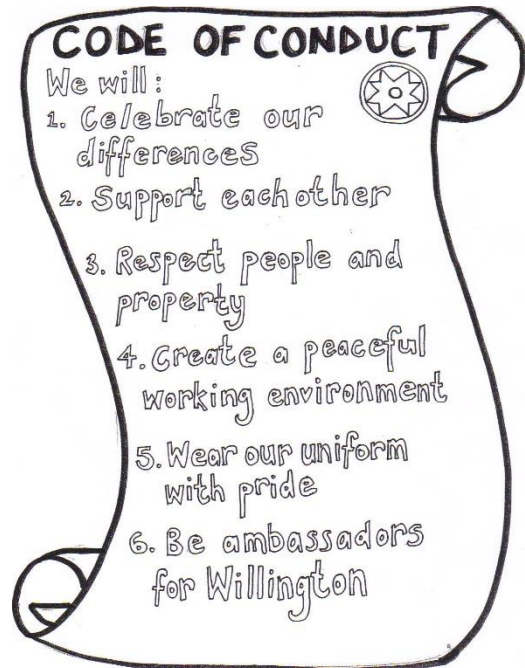 CODE OF CONDUCT
We will:
1. Celebrate our
differences
2. Support each other
3. Respect people and
property
4. Create a peaceful
working environment
5. Wear our uniform
with pride
6. Be ambassadors
for Willington